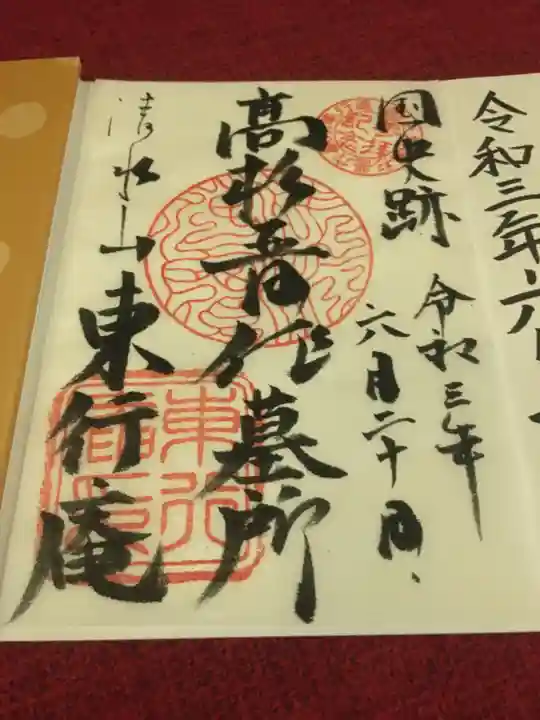 令和三年六月
国史跡
令和三年
六月二十日
高杉晋作墓所
清水山東行庵
東行